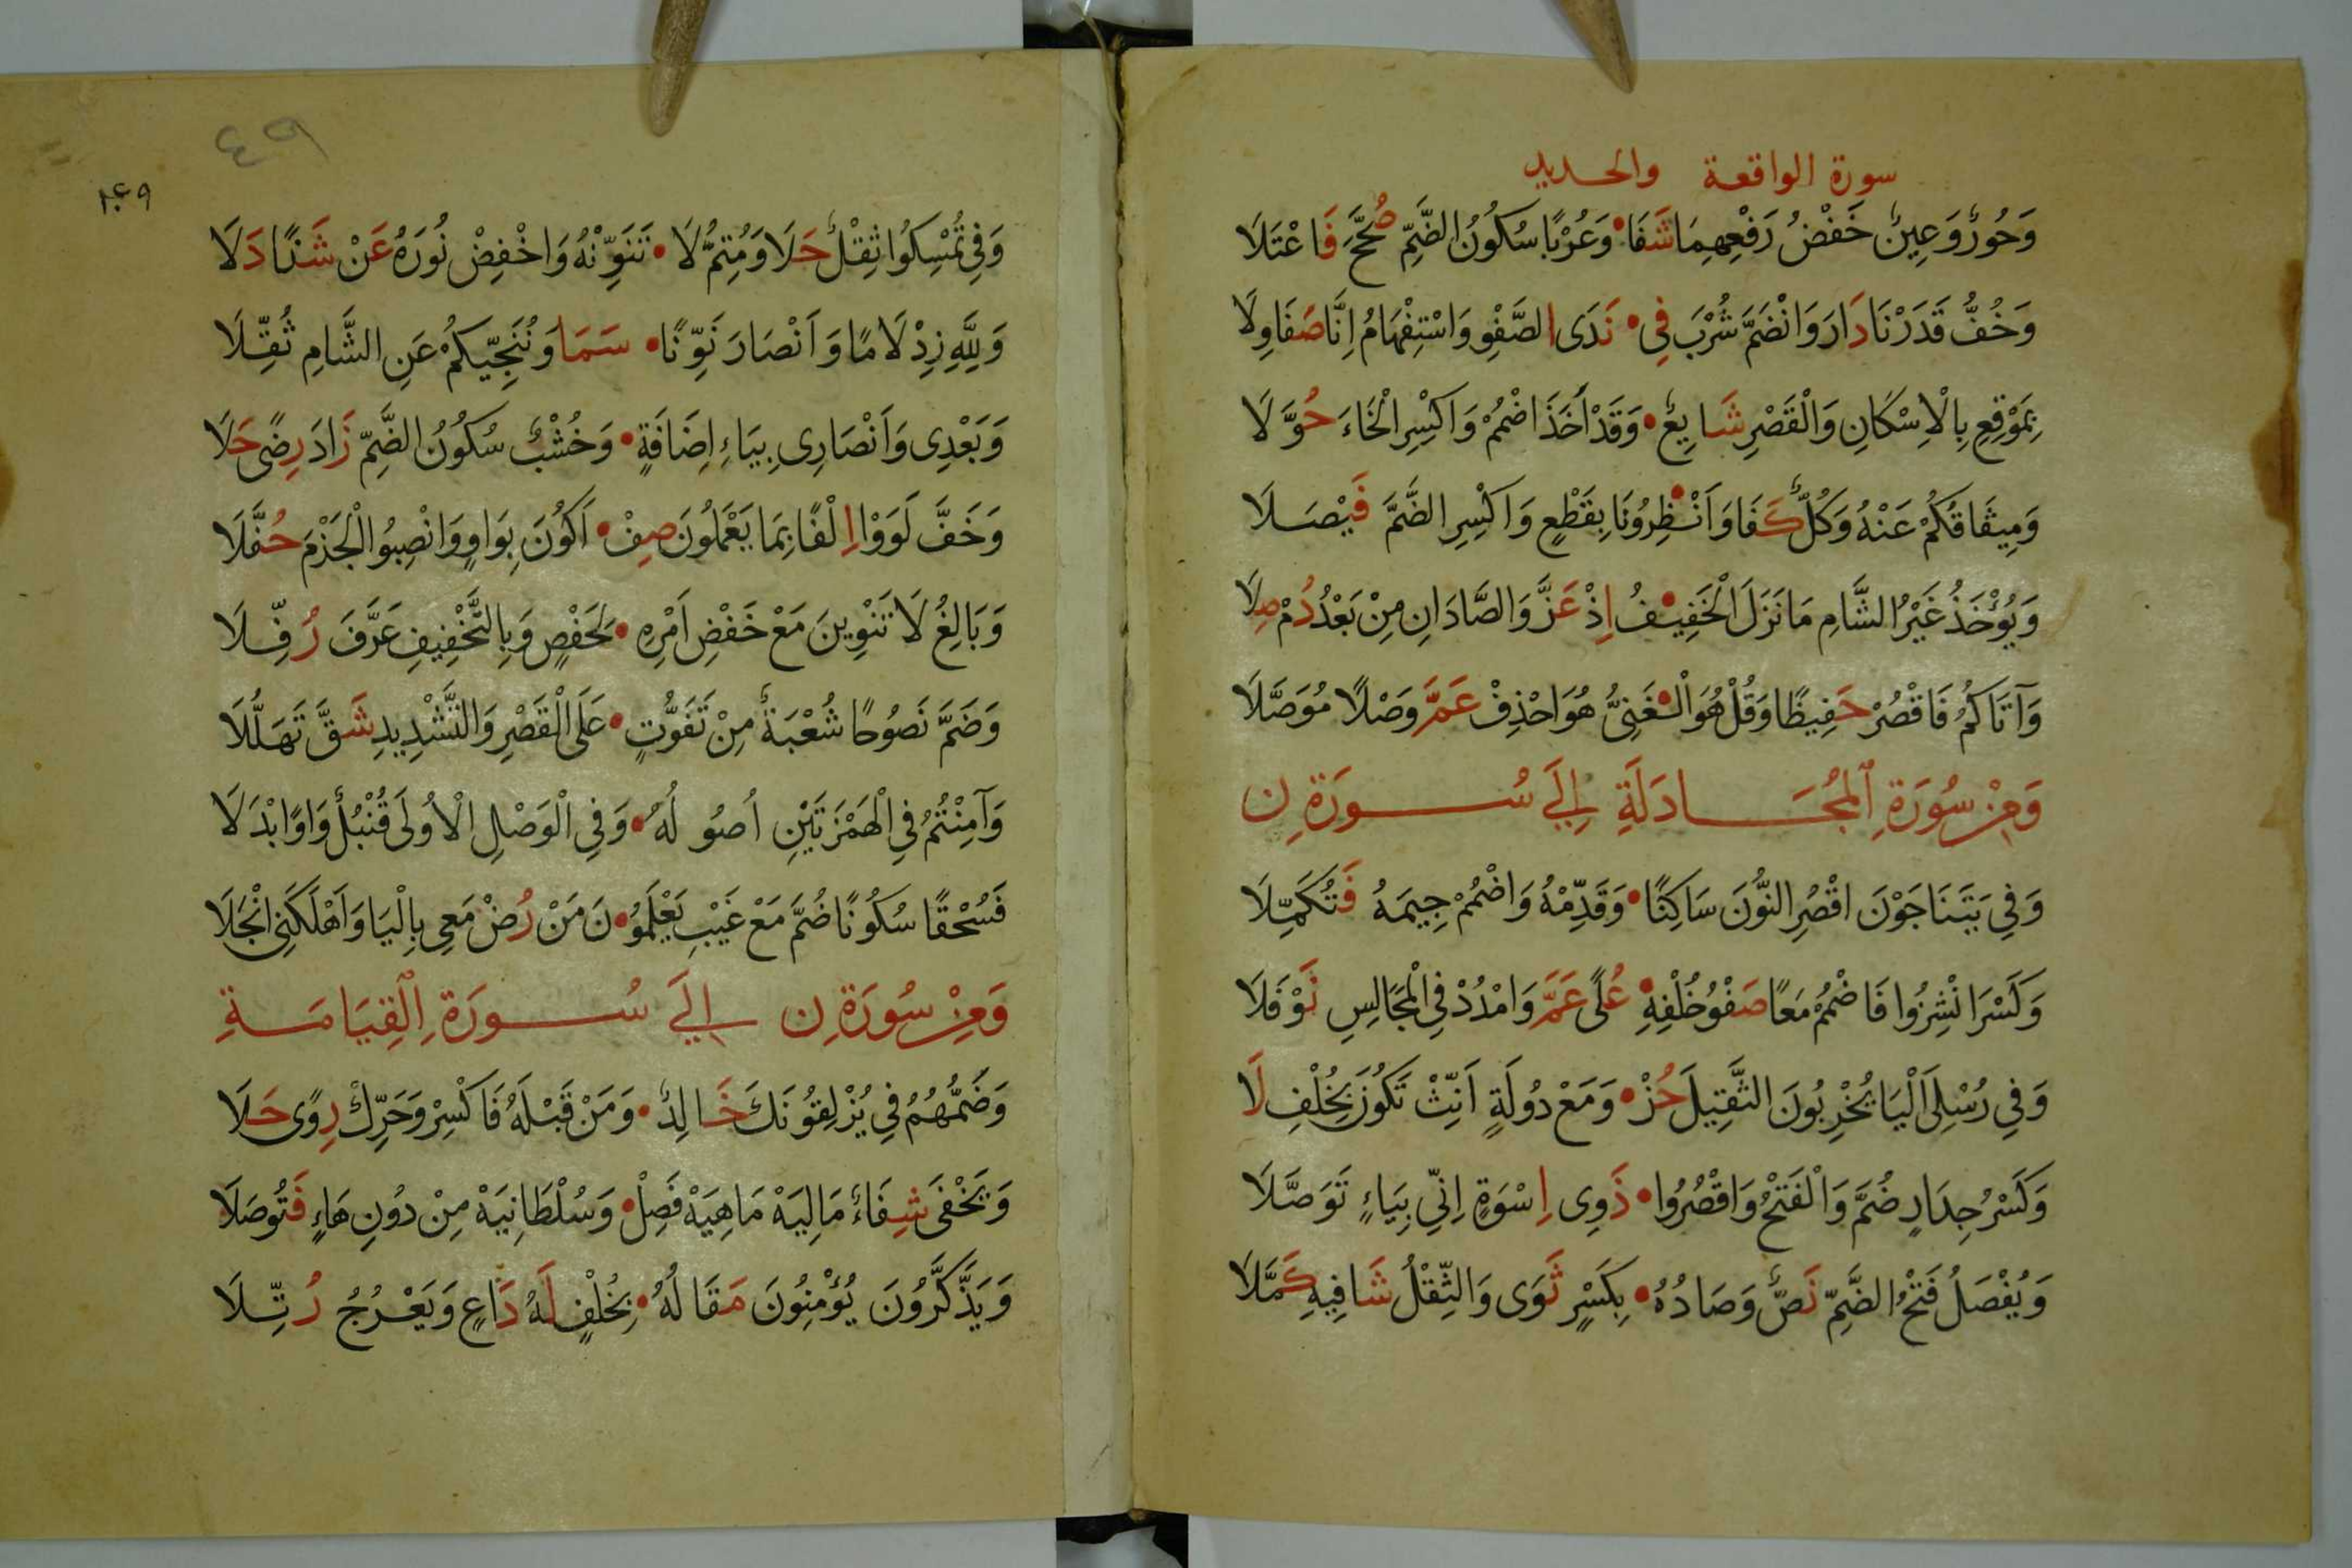 سورة الواقعة والحديد
وَحُورٌ وَعِينٌ خَفْضُ رَفْعِهِمَا شَفَا • وَعُرْبًا سُكُونُ الضَّمِّ صُحِّحَ فَاعْتَلَا
وَخُفُّ قَدَرْنَا دَارَ وَانْضَمَّ شُرْبَ فِي • نَدَى الصَّفْوِ وَاسْتِفْهَامُ إِنَّا صَفَا وِلَا
بِمَوْقِعِ بِالْاِسْكَانِ وَالْقَصْرِ شَايِعٌ • وَقَدْ أَخَذَ اضْمُمْ وَاكْسِرِ الْخَاءَ حُوَّلَا
وَمِيثَاقُكُمْ عَنْهُ وَكُلٌّ كَفَا وَأَنْظِرُونَا بِقَطْعٍ وَاكْسِرِ الضَّمَّ فَيْصَلَا
وَيُؤْخَذُ غَيْرُ الشَّامِ مَا نَزَلَ الْخَفِيفُ إِذْ عَزَّ وَالصَّادَانِ مِنْ بَعْدُ دُمْ صِلَا
وَآتَاكُمُ فَاقْصُرْ حَفِيظًا وَقُلْ هُوَ الْغَنِيُّ هُوَ احْذِفْ عَمَّ وَصْلًا مُوَصَّلَا
وَمِنْ سُورَةِ الْمُجَادَلَةِ إِلَى سُورَةِ ن
وَفِي يَتَنَاجَوْنَ اقْصُرِ النُّونَ سَاكِنًا • وَقَدِّمْهُ وَاضْمُمْ جِيمَهُ فَتُكَمِّلَا
وَكَسْرَ انْشِزُوا فَاضْمُمْ مَعًا صَفْوُ خُلْفِهِ • عُلًى عَمَّ وَامْدُدْ فِي الْمَجَالِسِ نَوْفَلَا
وَفِي رُسُلِي الْيَا يُخْرِبُونَ الثَّقِيلَ حُزْ • وَمَعْ دُولَةٍ أَنِّثْ تَكُونَ بِخُلْفِ لَا
وَكَسْرُ جِدَارٍ ضُمَّ وَالْفَتْحُ وَاقْصُرُوا • ذَوِي إِسْوَةٍ إِنِّي بِيَاءٍ تَوَصَّلَا
وَيُفْصَلُ فَتْحُ الضَّمِّ نَصٌّ وَصَادُهُ • بِكَسْرٍ ثَوَى وَالثِّقْلُ شَافِيهِ كَمَّلَا
٤٩
وَفِي تُمْسِكُوا ثِقْلٌ حَلَا وَمُتِمُّ لَا • تُنَوِّنْهُ وَاخْفِضْ نُورَهُ عَنْ شَذًا دَلَا
وَلِلَّهِ زِدْ لَامًا وَأَنْصَارَ نَوِّنًا • سَمَا وَنُنَجِّيكُمْ عَنِ الشَّامِ ثُقِّلَا
وَبَعْدِي وَأَنْصَارِي بِيَاءِ إِضَافَةٍ • وَخُشْبٌ سُكُونُ الضَّمِّ زَادَ رِضًى حَلَا
وَخَفَّ لَوَوْا إِلْفًا بِمَا يَعْمَلُونَ صِفْ • أَكُونَ بِوَاوٍ وَانْصِبُوا الْجَزْمَ حُفَّلَا
وَبَالِغُ لَا تَنْوِينَ مَعْ خَفْضِ أَمْرِهِ • لِحَفْصٍ وَبِالتَّخْفِيفِ عَرَّفَ رُفِّلَا
وَضَمَّ نَصُوحًا شُعْبَةٌ مِنْ تَفَوُّتٍ • عَلَى الْقَصْرِ وَالتَّشْدِيدِ شَقَّ تَهَلُّلَا
وَآمِنْتُمُ فِي الْهَمْزَتَيْنِ أُصُولُهُ • وَفِي الْوَصْلِ الْأُولَى قُنْبُلٌ وَاوًا ابْدَلَا
فَسُحْقًا سُكُونًا ضُمَّ مَعْ غَيْبِ يَعْلَمُونَ مَنْ رُضْ مَعِي بِالْيَا وَأَهْلَكَنِي انْجَلَا
وَمِنْ سُورَةِ ن إِلَى سُورَةِ الْقِيَامَةِ
وَضَمُّهُمُ فِي يُزْلِقُونَكَ خَالِدٌ • وَمَنْ قَبْلَهُ فَاكْسِرْ وَحَرِّكْ رِوًى حَلَا
وَيَخْفَى شِفَاءٌ مَالِيَهْ مَاهِيَهْ فَصِلْ • وَسُلْطَانِيَهْ مِنْ دُونِ هَاءٍ فَتُوصَلَا
وَيَذَّكَّرُونَ يُؤْمِنُونَ مَقَالُهُ • بِخُلْفٍ لَهُ دَاعٍ وَيَعْرُجُ رُتِّلَا